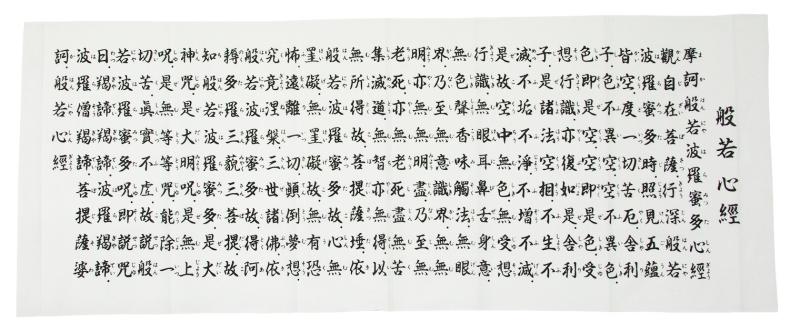 般若心經
摩訶般若波羅蜜多心經
觀自在菩薩行深般若
波羅蜜多時照見五蘊
皆空度一切苦厄舍利
子色不異空空不異色
色即是空空即是色受
想行識亦復如是舍利
子是諸法空相不生不
滅不垢不淨不增不減
是故空中無色無受想
行識無眼耳鼻舌身意
無色聲香味觸法無眼
界乃至無意識界無無
明亦無無明盡乃至無
老死亦無老死盡無苦
集滅道無智亦無得以
無所得故菩提薩埵依
般若波羅蜜多故心無
罣礙無罣礙故無有恐
怖遠離一切顛倒夢想
究竟涅槃三世諸佛依
般若波羅蜜多故得阿
耨多羅三藐三菩提故
知般若波羅蜜多是大
神咒是大明咒是無上
咒是無等等咒能除一
切苦眞實不虛故說般
若波羅蜜多咒即說咒
曰羯諦羯諦波羅羯諦
波羅僧羯諦菩提薩婆
訶般若心經